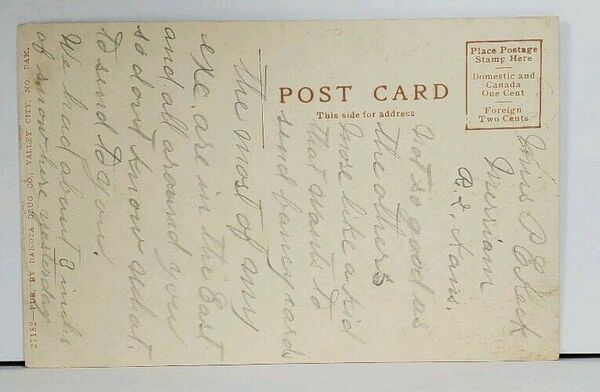 27182—PUB. BY DAKOTA DRUG CO., VALLEY CITY, NO. DAK.
POST CARD
This side for address
Place Postage
Stamp Here
Domestic and
Canada
One Cent
Foreign
Two Cents
Miss P
Merriam
Kans.
Not so good as
the others
more like a kid
that wants to
send fancy cards
the most of my
exc. are in the East
and all around you
so dont know what
to send to you.
We had about 3 inches
of snow here yesterday